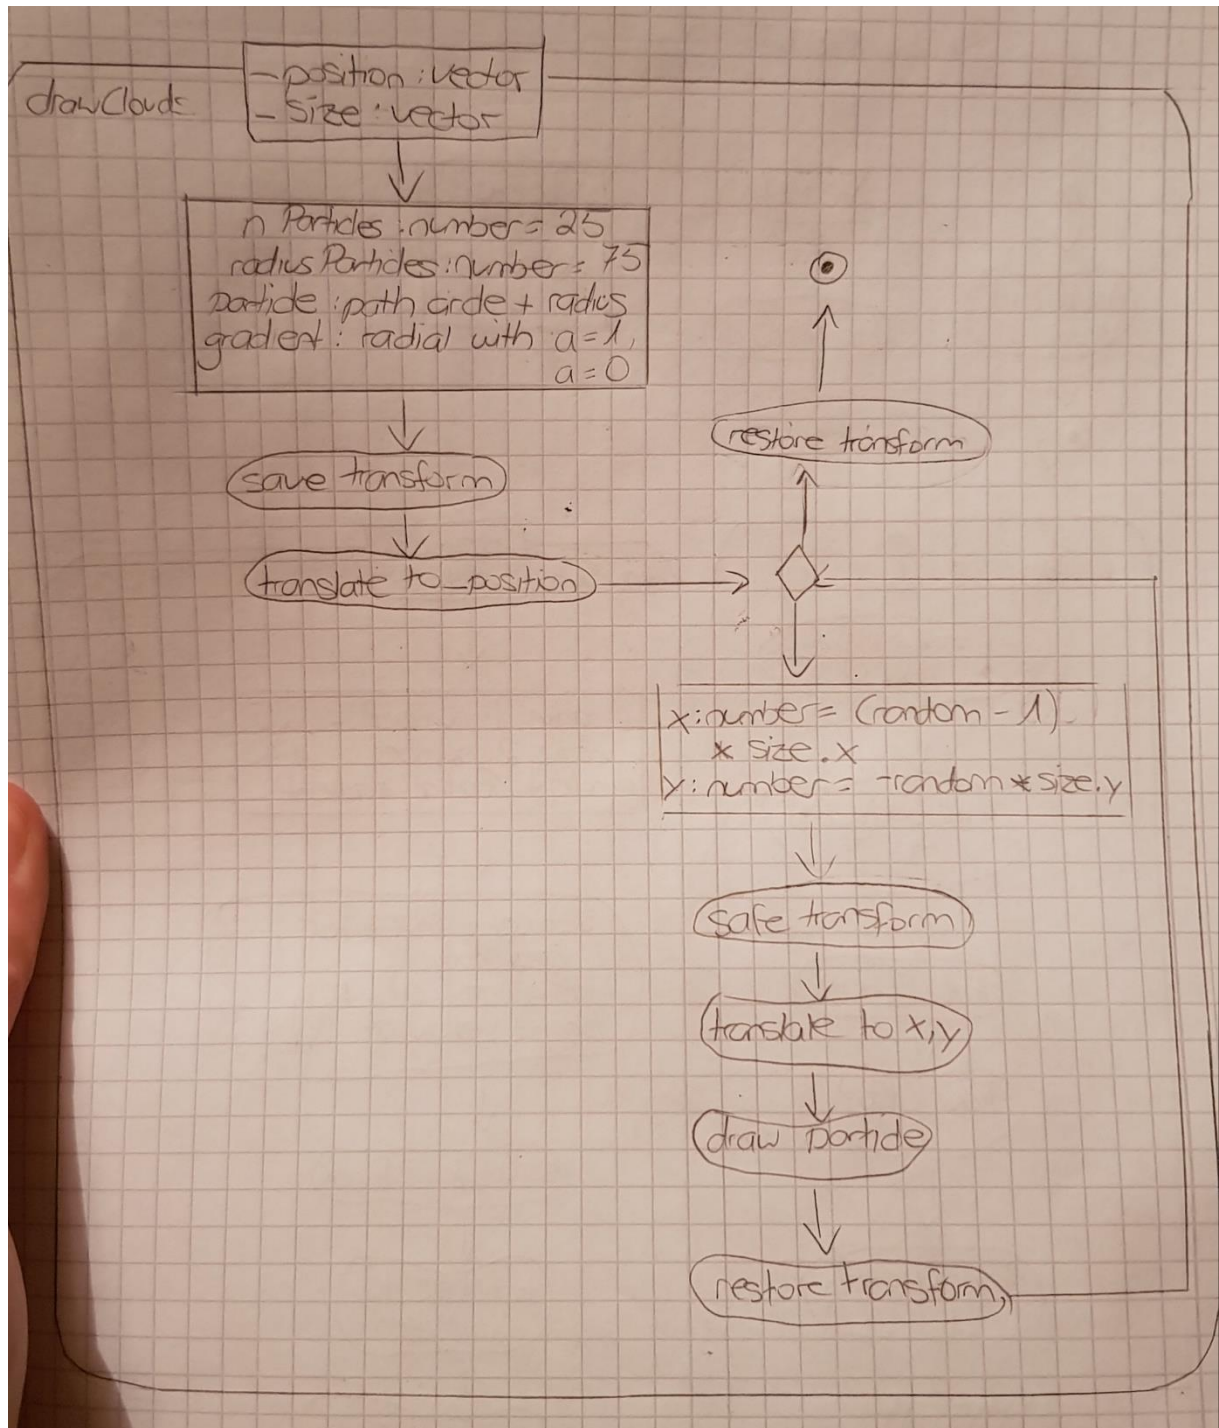 drawClouds
- position : vector
- size : vector
n Particles : number = 25
radius Particles : number = 75
particle : path circle + radius
gradient : radial with a = 1,
a = 0
save transform
translate to _position
restore transform
x : number = (random - 1)
* size.x
y : number = -random * size.y
safe transform
translate to x,y
draw particle
restore transform